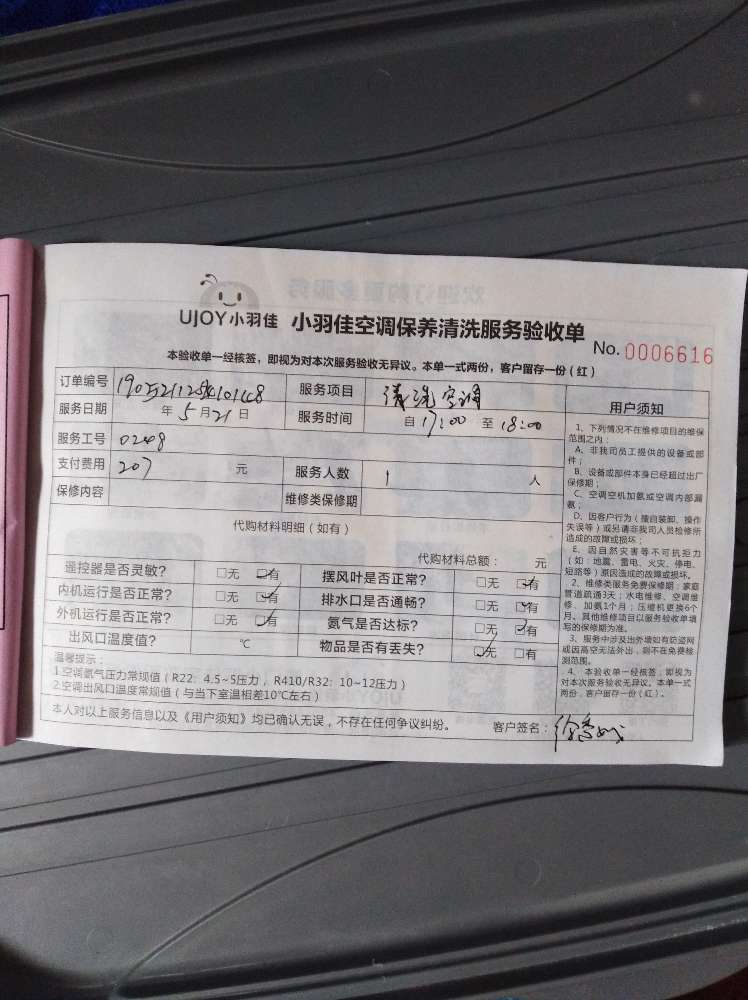 UJOY小羽佳 小羽佳空调保养清洗服务验收单
No. 0006616
本验收单一经核签，即视为对本次服务验收无异议。本单一式两份，客户留存一份（红）
订单编号 服务项目 清洗空调
服务日期 年5月21日 服务时间 自17:00至18:00
服务工号 0248
支付费用 207 元 服务人数 1 人
保修内容 维修类保修期
代购材料明细（如有）
代购材料总额： 元
遥控器是否灵敏？ □无 □有 摆风叶是否正常？ □无 □有
内机运行是否正常？ □无 □有 排水口是否通畅？ □无 □有
外机运行是否正常？ □无 □有 氨气是否达标？ □无 □有
出风口温度值？ ℃ 物品是否有丢失？ □无 □有
温馨提示：
1.空调氨气压力常规值（R22：4.5~5压力，R410/R32：10~12压力）
2.空调出风口温度常规值（与当下室温相差10℃左右）
本人对以上服务信息以及《用户须知》均已确认无误，不存在任何争议纠纷。 客户签名：
用户须知
1、下列情况不在维修项目的维保
范围之内：
A、非我司员工提供的设备或部
件；
B、设备或部件本身已经超过出厂
保修期；
C、空调空机加氨或空调内部漏
氨；
D、因客户行为（擅自装卸、操作
失误等）或另请非我司人员检修所
造成的故障或损坏；
E、因自然灾害等不可抗拒力
（如：地震、雷电、火灾、停电、
短路等）原因造成的故障或损坏。
2、维修类服务免费保修期：家庭
管道疏通3天；水电维修、空调维
修、加氨1个月；压缩机更换6个
月。其他维修项目以服务验收单填
写的保修期为准。
3、服务中涉及出外墙如有防盗网
或因高空无法外出，则不在免费检
测范围。
4、本验收单一经核签，即视为
对本次服务验收无异议。本单一式
两份，客户留存一份（红）。